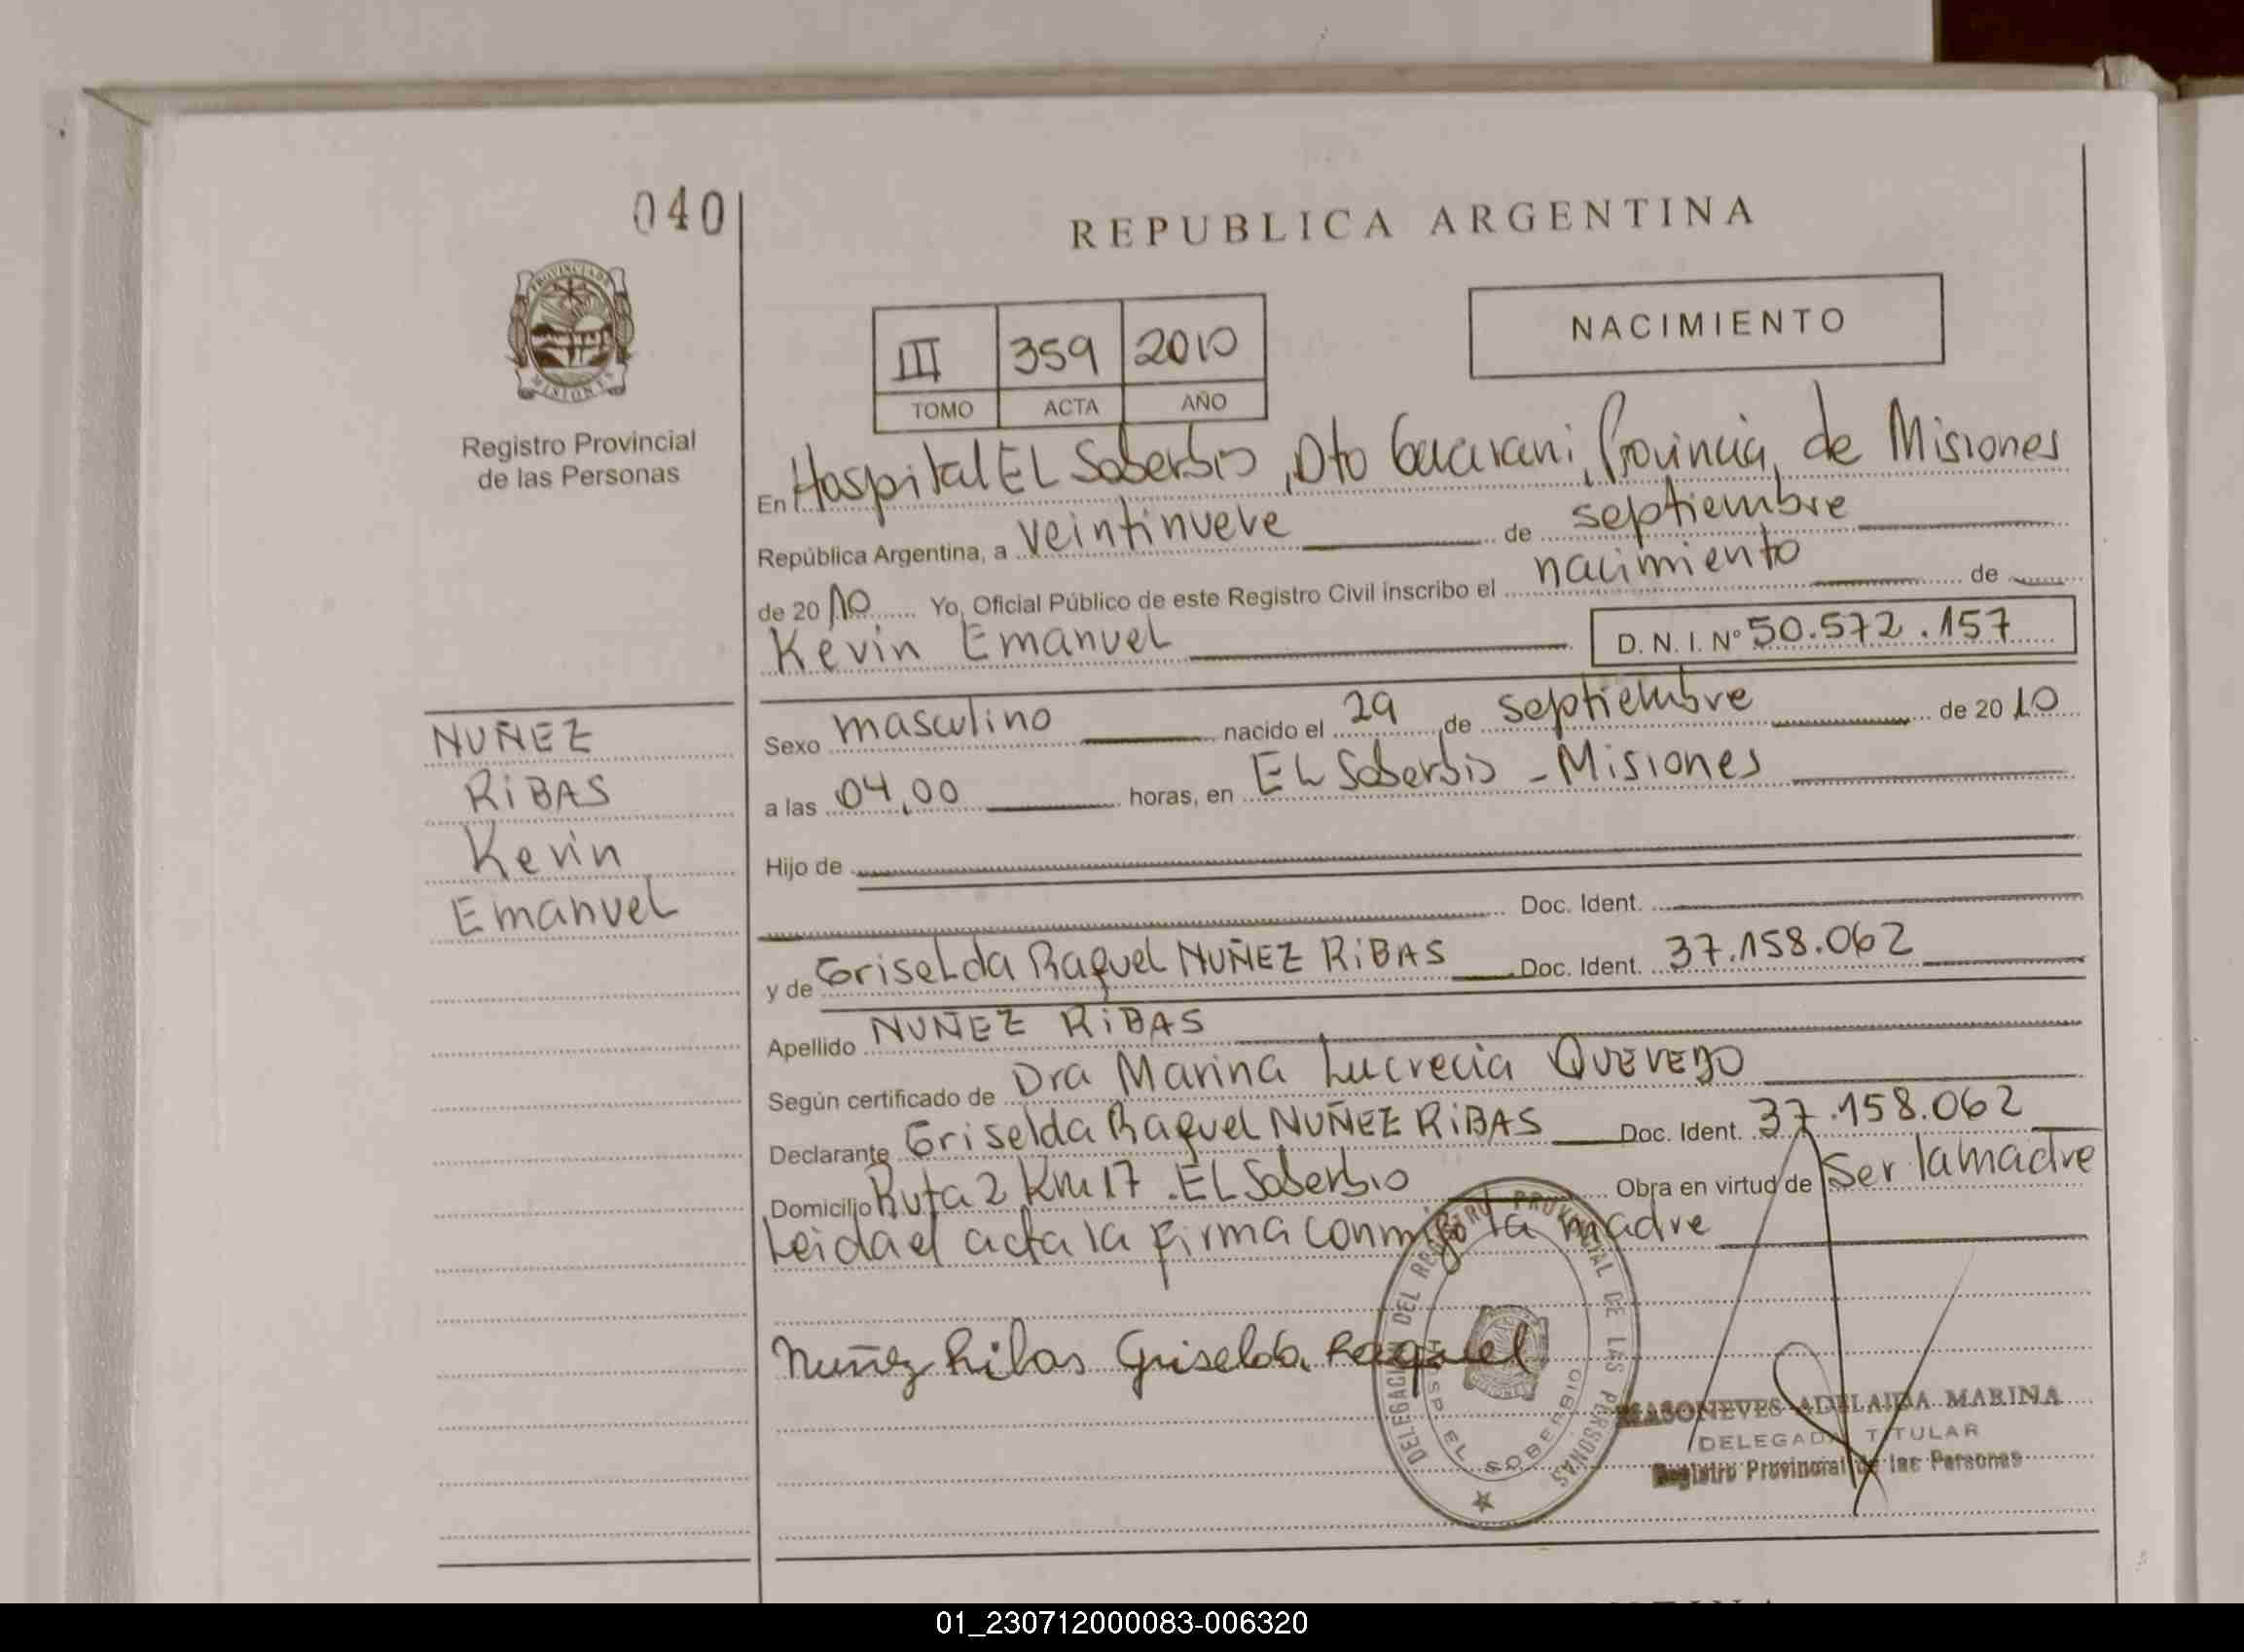 040
REPUBLICA ARGENTINA
PROVINCIA DE
MISIONES
Registro Provincial
de las Personas
III 359 2010
TOMO ACTA AÑO
NACIMIENTO
En Hospital EL Soberbio, Dto Guarani, Provincia de Misiones
República Argentina, a veintinueve de septiembre
de 2010 Yo, Oficial Público de este Registro Civil inscribo el nacimiento de
Kevin Emanuel D. N. I. Nº 50.572.157
NUÑEZ
RiBAS
Kevin
EmanueL
Sexo masculino nacido el 29 de septiembre de 2010
a las 04,00 horas, en EL Soberbio - Misiones
Hijo de
Doc. Ident.
y de GriseLda RaqueL NUÑEZ RiBAS Doc. Ident. 37.158.062
Apellido NUÑEZ RiBAS
Según certificado de Dra Marina Lucrecia QUEVEDO
Declarante Griselda RaqueL NUÑEZ RiBAS Doc. Ident. 37.158.062
Domicilio Ruta 2 Km 17 . EL Soberbio Obra en virtud de Ser la madre
Leida el acta la firma conmigo la madre
Nuñez Ribas Griselda Raquel
DELEGACION DEL REGISTRO PROVINCIAL DE LAS PERSONAS
HOSP EL SOBERBIO
MASONEVES ADELAIDA MARINA
DELEGADA TITULAR
Registro Provincial de las Personas
01_230712000083-006320